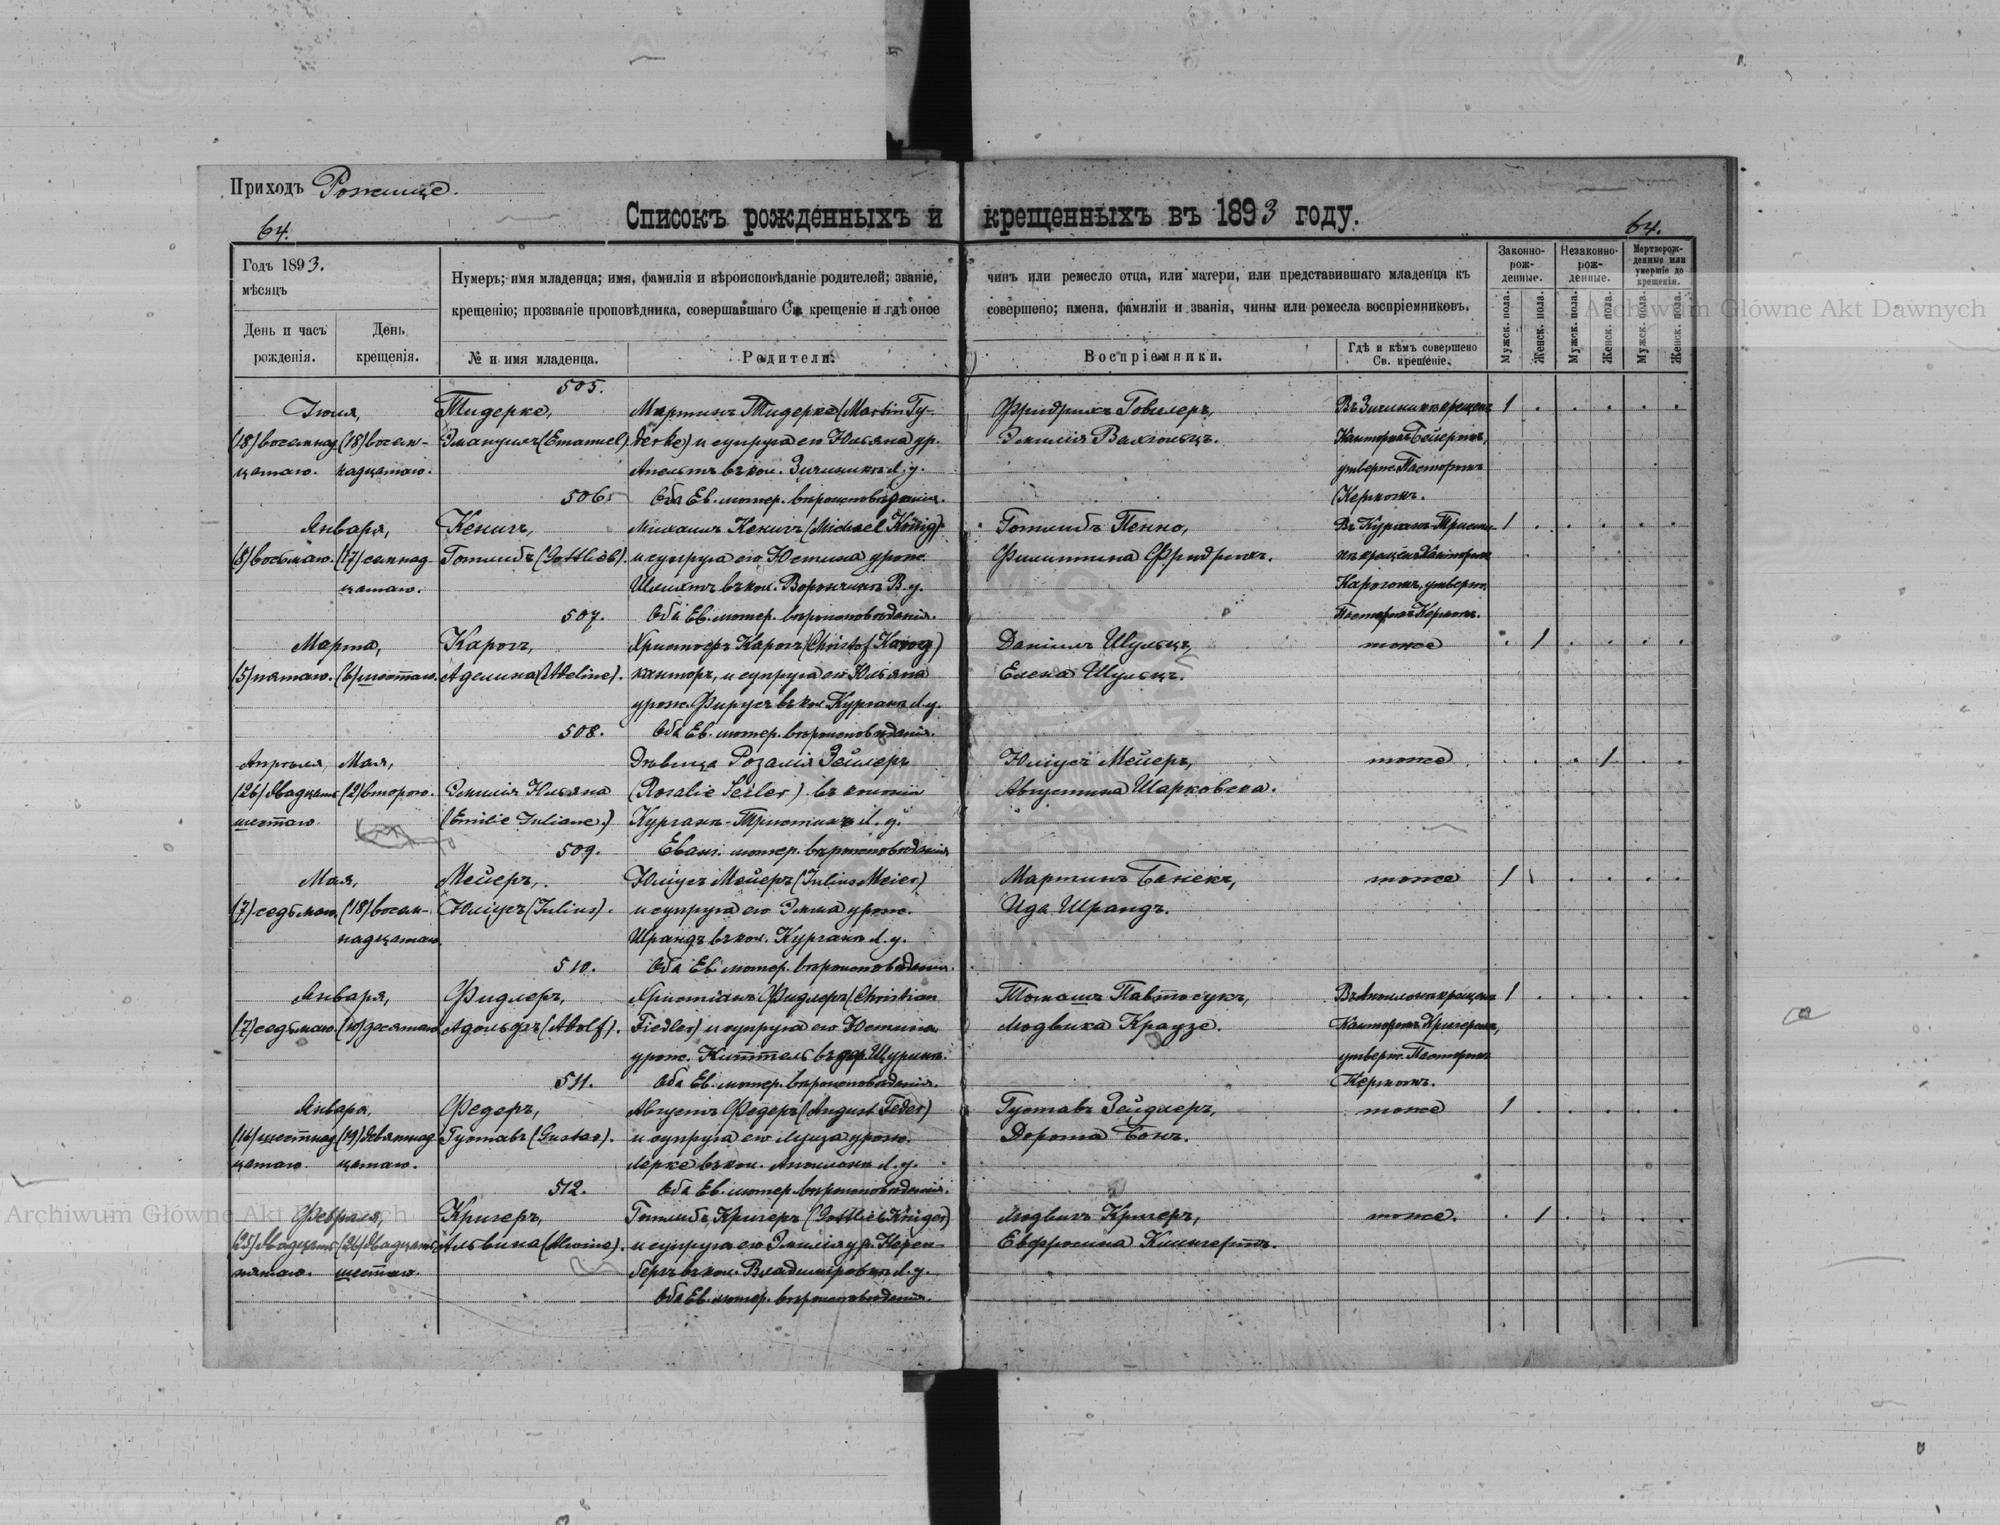 Приходъ Рожище.
Списокъ рожденныхъ и крещенныхъ въ 1893 году.
64.
64.
Годъ 1893.
мѣсяцъ
День и часъ
рожденія.
День
крещенія.
Нумеръ; имя младенца; имя, фамилія и вѣроисповѣданіе родителей; званіе,
крещенію; прозваніе проповѣдника, совершавшаго Св. крещеніе и гдѣ оное
№ и имя младенца.
Родители.
чинъ или ремесло отца, или матери, или представившаго младенца къ
совершено; имена, фамиліи и званія, чины или ремесла воспріемниковъ.
Воспріемники.
Гдѣ и кѣмъ совершено
Св. крещеніе.
Законно-
рож-
денные.
Незаконно-
рож-
денные.
Мертворож-
денные или
умершіе до
крещенія.
Мужск. пола.
Женск. пола.
Мужск. пола.
Женск. пола.
Мужск. пола.
Женск. пола.
505.
Іюля,
(18) восемнад
цатаго.
(18) восем-
надцатаго.
Тидерке,
Эмануилъ (Emanuel)
Мартинъ Тидерке (Martin Ty-
derke) и супруга его Юльяна ур.
въ кол. Л. у.
Оба Ев. лютер. вѣроисповѣданія.
Фридрихъ Говилеръ,
Эмилія
крещенъ
Канторомъ Бейеромъ,
утверж. Пасторомъ
Кермомъ.
1
506.
Января,
(8) восьмаго.
(17) семнад-
цатаго.
Кенигъ,
Готлибъ (Gottlieb).
Михаилъ Кенигъ (Michael König)
и супруга его Юстина урож.
въ кол. Ворончинъ В. у.
Оба Ев. лютер. вѣроисповѣданія.
Готлибъ Пенно,
Филиппина Фридрихъ.
Въ Курганъ-
крещенъ Канторомъ
Карогомъ, утверж.
Пасторомъ Кермомъ.
1
507.
Марта,
(5) пятаго.
(6) шестаго.
Карогъ,
Аделина (Adeline).
Христофъ Карогъ (Christof Karog)
канторъ, и супруга его Юльяна
урож. Фирусъ въ кол. Курганъ Л. у.
Оба Ев. лютер. вѣроисповѣданія.
Даніилъ Шульцъ,
Елена Шульцъ.
тоже
1
508.
Апрѣля,
(26) двадцать
шестаго
Мая,
(2) втораго.
Эмилія Юльяна
(Emilie Juliane.)
Дѣвица Розалія Зейлеръ
(Rosalie Seiler) въ колоніи
Курганъ- Л. у.
Еванг. лютер. вѣроисповѣданія
Юліусъ Мейеръ,
Августина Шарковска.
тоже
1
509.
Мая,
(7) седьмаго
(18) восем-
надцатаго
Мейеръ,
Юліусъ (Julius).
Юліусъ Мейеръ (Julius Meier)
и супруга его Эмма урож.
Шрандъ въ кол. Курганъ Л. у.
Оба Ев. лютер. вѣроисповѣданія.
Мартинъ Банекъ,
Ида Шрандъ.
тоже
1
510.
Января,
(7) седьмаго.
(10) десятаго
Фидлеръ,
Адольфъ (Adolf).
Христіанъ Фидлеръ (Christian
Fiedler) и супруга его Юстина
урож. Киттель въ дер. Щуринъ.
Оба Ев. лютер. вѣроисповѣданія.
Томашъ Павтосукъ,
Людвика Краузе.
крещенъ
Канторомъ Кригеромъ,
утверж. Пасторомъ
Кермомъ.
1
511.
Января,
(16) шестнад
цатаго
(19) девятнад
цатаго.
Федеръ,
Густавъ (Gustav).
Августъ Федеръ (August Feder)
и супруга его Луиза урож.
Лерке въ кол. Л. у.
Оба Ев. лютер. вѣроисповѣданія.
Густавъ Зейдлеръ,
Дорота Бонъ.
тоже
1
512.
Февраля,
(25) двадцать
пятаго.
(26) двадцать
шестаго.
Кригеръ,
Альвина (Alwine).
Готлибъ Кригеръ (Gottlieb Krüger)
и супруга его Эмилія ур. Нерен-
бергъ въ кол. Владимировка Л. у.
Оба Ев. лютер. вѣроисповѣданія.
Людвигъ Кригеръ,
Евфросина Клингертъ.
тоже.
1
Archiwum Główne Akt Dawnych
Archiwum Główne Akt Dawnych